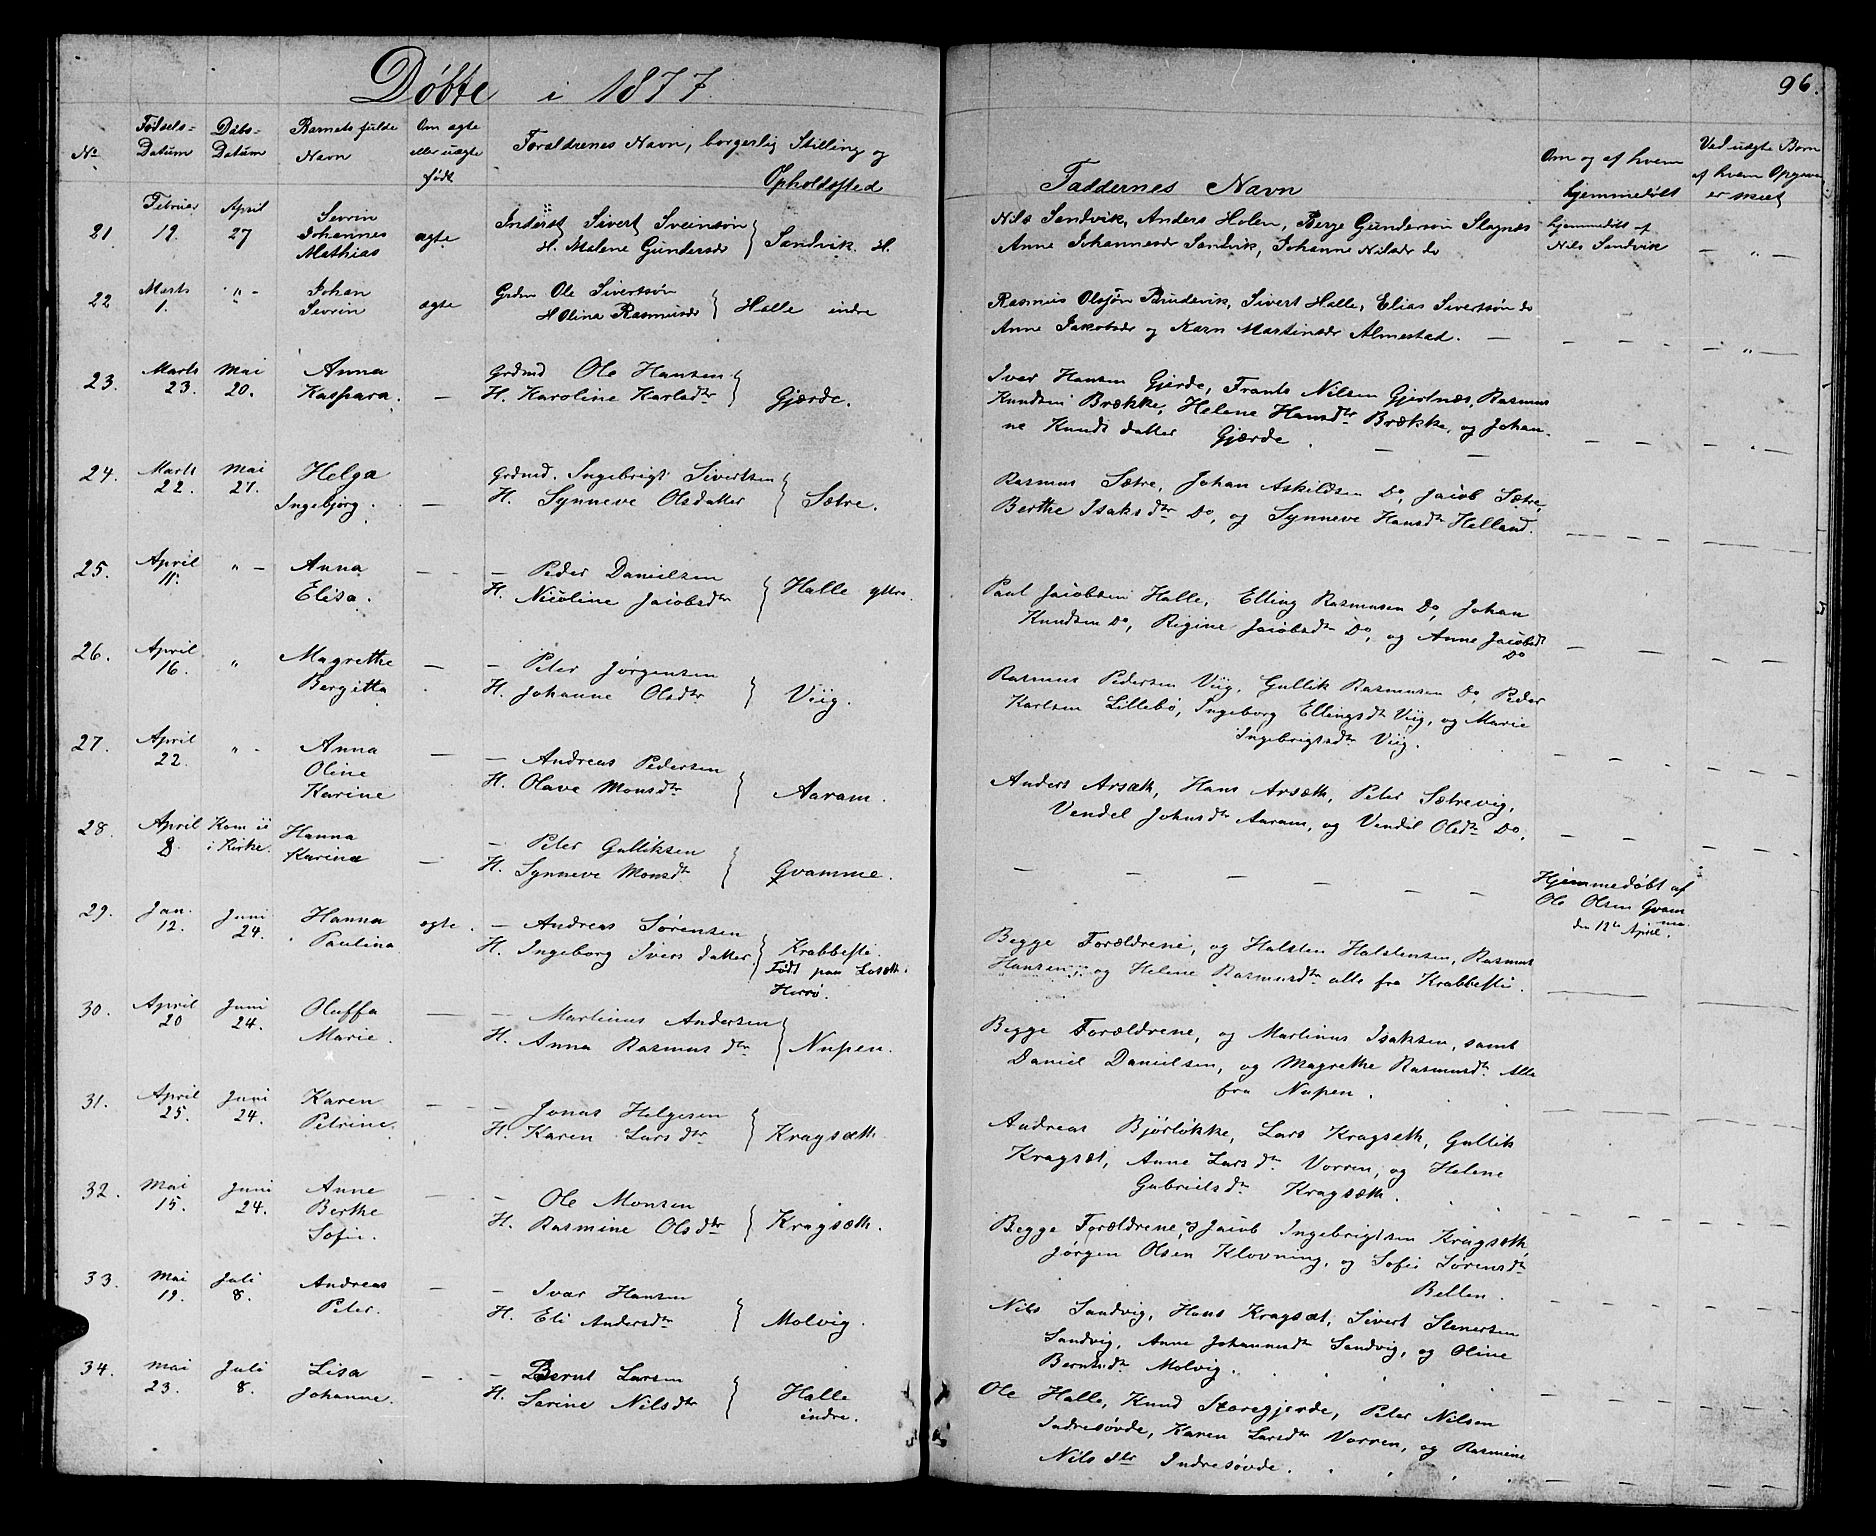 Døbte i 1877.
96.
No
Fødsels-
Datum
Daabs-
Datum
Barnets fulde
Navn
Om ægte
eller uægte
født
Forældrenes Navn, borgerlig Stilling og
Opholdssted
Faddernes Navn
Om og af hvem
hjemmedøbt
Ved uægte Born
af hvem Opgaven
er skeet
21 Februar 19. April 27 Sevrin Johannes Mathias ægte
Inderst Sivert Sveinsøn
H. Malene Gundersdr } Sandvik. H.
Nils Sandvik, Anders Holen, Berge Gundersøn Slagnæs
Anne Johannesdr Sandvik, Johanne Nilsdr do
hjemmedøbt af
Nils Sandvik
22 Marts 1. " - Johan Sevrin ægte
Grdm Ole Sivertsøn
H Olina Rasmusdr } Halle indre
Rasmus Olsøn Brudevik, Sivert Halle, Elias Sivertsøn do
Anne Jakobsdr og Karn Martinsdr Almestad. —
23. Marts 23. Mai 20. Anna Kaspara. —
Grdmd Ole Hansen
H. Karoline Karlsdtr } Gjærde.
Ivar Hansen Gjerde, Frants Nilsen Gjertnæs, Rasmus
Knudsen Brække, Helene Hansdtr Brække, og Johan-
ne Knudsdatter Gjærde.
24. Marts 22. Mai 21. Helga Ingebjørg. —
Grdmd. Ingebrigt Sivertsen
H. Synneve Olsdatter } Sætre.
Rasmus Sætre, Johan Askildsen Do, Jacob Sætre,
Berthe Isaksdtr Do, og Synneve Hansdtr Helland.
25. April 11. " - Anna Elisa. —
— Peder Danielsen
H. Nicoline Jacobsdtr } Halle yttre.
Paul Jacobsen Halle, Elling Rasmusen Do, Johan
Knudsen Do, Regine Jacobsdtr Do, og Anne Jacobsdt
Do
26. April 16. " Magrethe Bergitta —
— Peter Jørgensen
H. Johanne Olsdtr } Viig.
Rasmus Pedersen Viig, Gullik Rasmusen Do, Peder
Karlsen Lillebø, Ingeborg Ellingsdt Viig, og Marie
Ingebrigtsdtr Viig.
27. April 22. " - Anna Oline Karine —
— Andreas Pedersen
H. Olave Monsdtr } Aaram.
Anders Arsæth, Hans Arsæth, Peter Sætrevig,
Vendel Johnsdtr Aaram, og Vendel Olsdtr Do.
28. April 8. Kom ii i Kirke. Hanna Karina —
— Peter Gulliksen
H. Synneve Monsdt } Qvamme.
Hjemmedøbt af
Ole Olsen Qvam
me.
den 12te April.
29. Jan. 12. Juni 24. Hanna Paulina ægte.
— Andreas Sørensen
H. Ingeborg Iversdatter } Krabbesti.
Født paa
Herrø.
Begge Forældrene, og Halsten Halstensen, Rasmus
Hansen, og Helene Rasmusdtr alle fra Krabbesti.
30. April 20 Juni 24. Oluffa Marie. —
— Martinus Andersen
H. Anna Rasmusdtr } Nupen.
Begge Forældrene, og Martinus Isaksen, samt
Daniel Danielsen, og Magrethe Rasmusdt. Alle
fra Nupen.
31. April 25. Juni 24. Karen Petrine. —
— Jonas Helgesen
H. Karen Larsdtr } Kragsæth.
Andreas Bjørløkke, Lars Kragsæth, Gullik
Kragsæt, Anne Larsdtr Vorren, og Helene
Gabrielsdt Kragsæth.
32. Mai 15. Juni 24. Anne Berthe Sofie. —
— Ole Monsen
H. Rasmine Olsdtr } Kragsæth.
Begge Forældrene, og Jacob Ingebrigtsen Kragsæth,
Jørgen Olsen Klovning, og Sofie Sørensdtr
Betten.
33. Mai 19. Juli 8. Andreas Peter. —
— Ivar Hansen
H. Eli Andersdtr } Molvig.
Nils Sandvig, Hans Kragsæt, Sivert Stenersen
Sandvig, Anne Johannesdt Sandvig, og Oline
Berntsdtr Molvig.
34. Mai 23. Juli 8. Lisa Johanne. —
— Bernt Larsen
H. Sarine Nilsdtr } Halle
indre.
Ole Halle, Knud Storegjerde, Peter Nilsen
Indresøvde, Karen Larsdtr Vorren, og Rasmine
Nilsdtr Indresøvde.